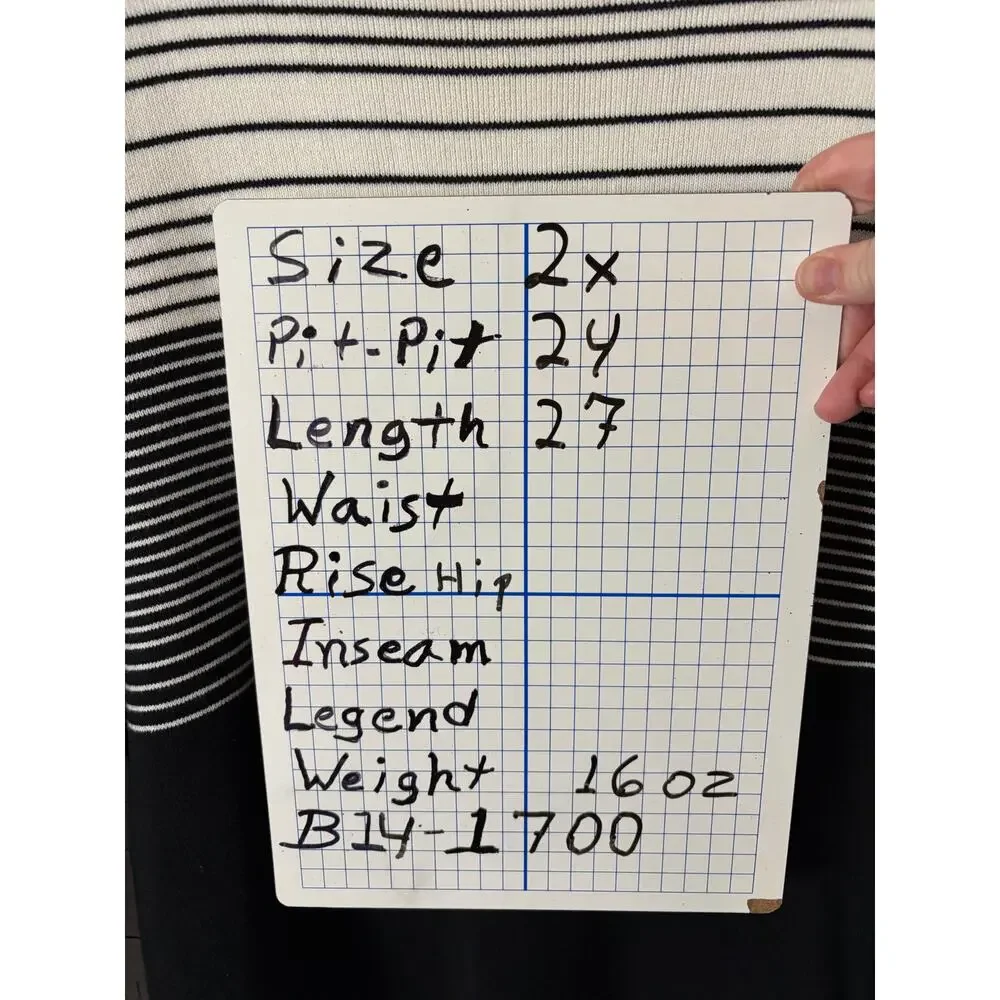 Size 2x
Pit-Pit 24
Length 27
Waist
Rise Hip
Inseam
Legend
Weight 16 oz
B14-1700